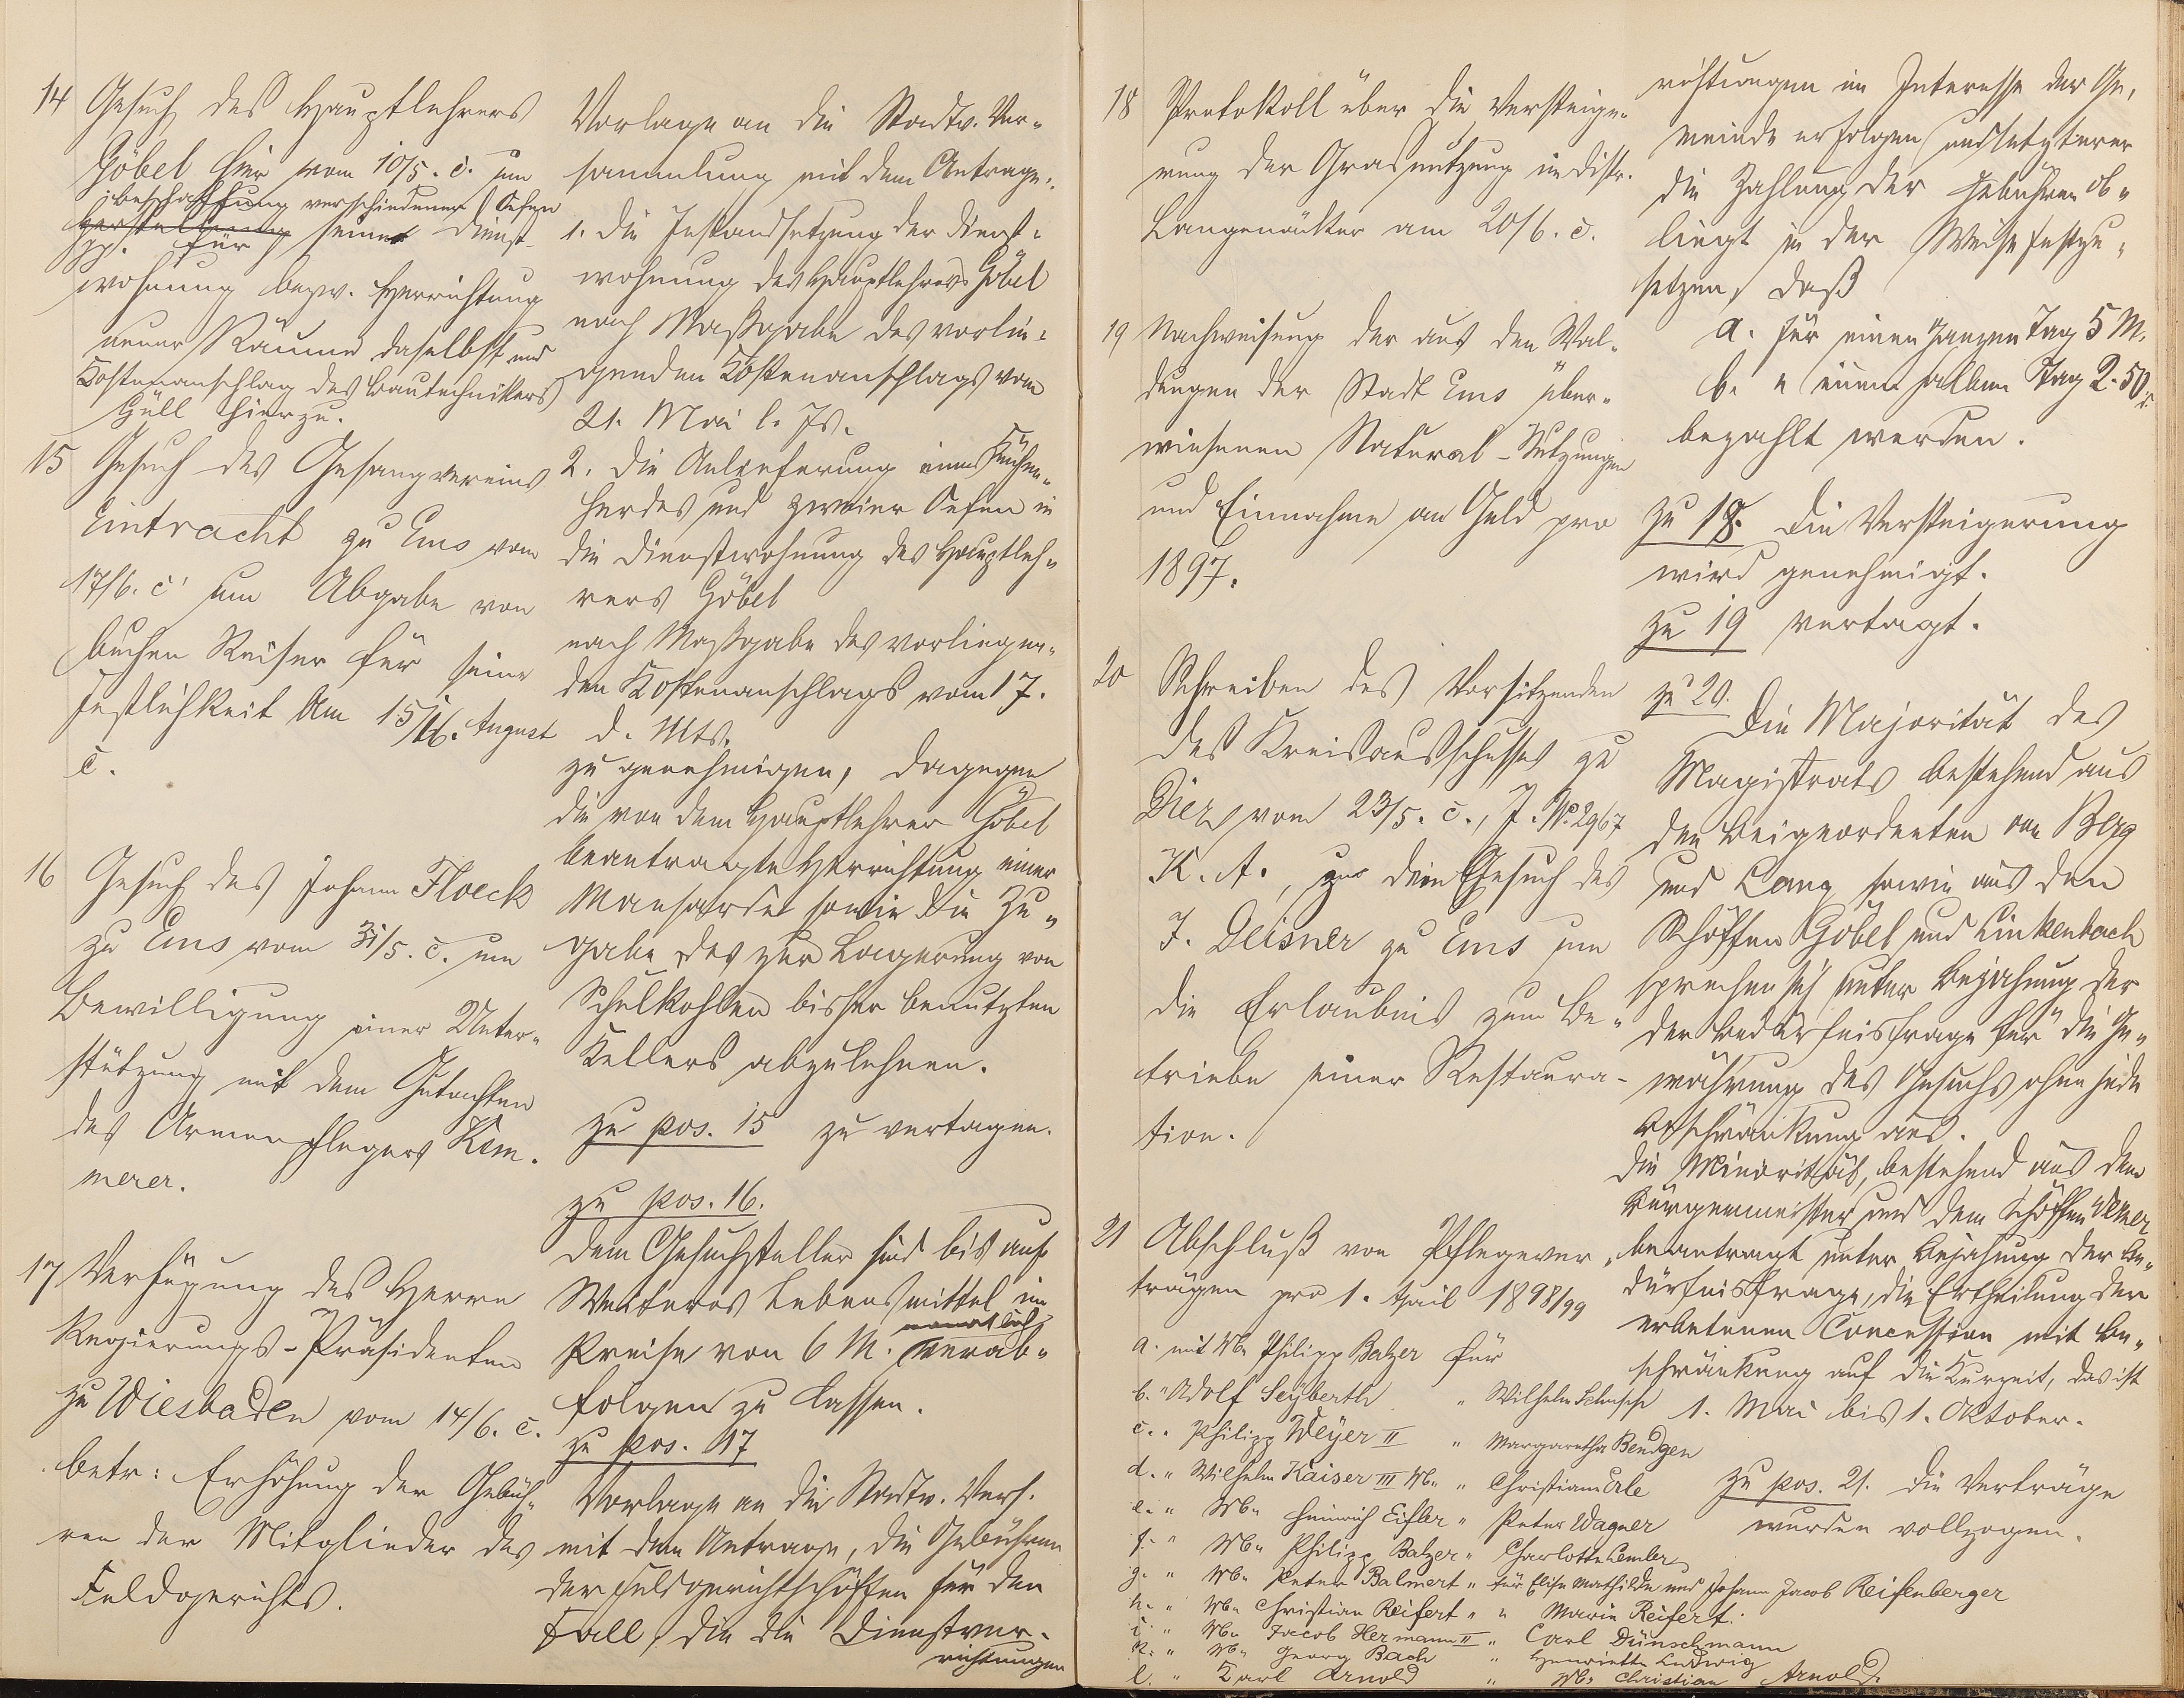 14 Gesuch des Hauptlehrers
Göbel hier vom 10/5. c. um
Beschaffung verschiedener Oefen
pp. für seine Dienst-
wohnung bezw. Herrichtung
neuer Räume daselbst und
Kostenanschlag des Bautechnikers
Güll hierzu.
15 Gesuch des Gesangvereins
Eintracht zu Ems vom
17/6. c. um Abgabe von
buchen Reiser für seine
Festlichkeit am 15/16. August
c.
16 Gesuch des Johann Floeck
zu Ems vom 31/5. c. um
Bewilligung einer Unter-
stützung mit dem Gutachten
des Armenpflegers Kem-
merer.
17 Verfügung des Herrn
Regierungs-Präsidenten
zu Wiesbaden vom 14/6. c.
betr: Erhöhung der Gebüh-
ren der Mitglieder des
Feldgerichts.
Vorlage an die Stadtv. Ver-
sammlung mit dem Antrage:
1. die Instandsetzung der Dienst-
wohnung des Hauptlehrers Göbel
nach Maßgabe des vorlie-
genden Kostenanschlags vom
21. Mai l. Js.
2. die Anlieferung eines Küchen-
herdes und zweier Oefen in
die Dienstwohnung des Hauptleh-
rers Göbel
nach Maßgabe des vorliegen-
den Kostenanschlags vom 17.
d. Mts.
zu genehmigen, dagegen
die von dem Hauptlehrer Göbel
beantragte Herrichtung einer
Mansarde sowie die Zu-
gabe des zur Lagerung von
Schulkohlen bisher benutzten
Kellers abzulehnen.
zu pos. 15 zu vertagen.
zu pos. 16.
dem Gesuchsteller sind bis auf
Weiteres Lebensmittel im
monatlich
Preise von 6 M. verab-
folgen zu lassen.
zu pos. 17
Vorlage an die Stadtv. Vers.
mit dem Antrage, die Gebühren
der Feldgerichtschöffen für den
Fall, die die Dienstver-
richtungen
18 Protokoll über die Versteige-
rung der Grasnutzung in Distr.
Langenäcker am 20/6. c.
19 Nachweisung der aus den Wal-
dungen der Stadt Ems über-
wiesenen Natural-Nutzungen
und Einnahme an Geld pro
1897.
20 Schreiben des Vorsitzenden
des Kreisausschusses zu
Diez vom 23/5. c., J. No. 2967
K. A., zu dem Gesuch des
J. Deisner zu Ems um
die Erlaubnis zum Be-
triebe einer Restaura-
tion.
21 Abschluß von Pflegever-
trägen pro 1. April 1898/99
a. mit Ww. Philipp Balzer für
b. " Adolf Seyberth " Wilhelm
c. " Philipp Weyer II " Margaretha Bendgen
d. " Wilhelm Kaiser III Ww. " Christian Erle
e. " Ww. Heinrich Eisler " Peter Wagner
f. " Ww. Philipp Balzer " Charlotte Lember
g. " Ww. Peter Balmert " für Elise Mathilde und Johann Jacob Reifenberger
h. " Ww. Christian Reifert " " Marie Reifert.
i. " Ww. Jacob Hermann II " Carl Dünschmann
k. " Ww. Georg Bach " Henriette Ludwig
l. " Karl Arnold " Ww. Christian Arnold.
richtungen im Interesse der Ge-
meinde erfolgen und letzterer
die Zahlung der Gebühren ob-
liegt in der Weise festzu-
setzen, daß
a. für einen ganzen Tag 5 M.
b. " einen halben Tag 2.50 "
bezahlt werden.
zu 18. Die Versteigerung
wird genehmigt.
zu 19 vertagt.
zu 20. Die Majorität des
Magistrats bestehend aus
den Beigeordneten von Berg
und Lang sowie aus den
Schöffen Göbel und Linkenbach
sprechen sich unter Bejahung der
der Bedürfnisfrage für die Ge-
währung des Gesuchs ohne jede
Beschränkung aus.
Die Minorität, bestehend aus dem
Bürgermeister und dem Schöffen
beantragt unter Bejahung der Be-
dürfnisfrage, die Ertheilung der
erbetenen Concession mit Be-
schränkung auf die Kurzeit, das ist
1. Mai bis 1. Oktober.
zu pos. 21. Die Verträge
wurden vollzogen.